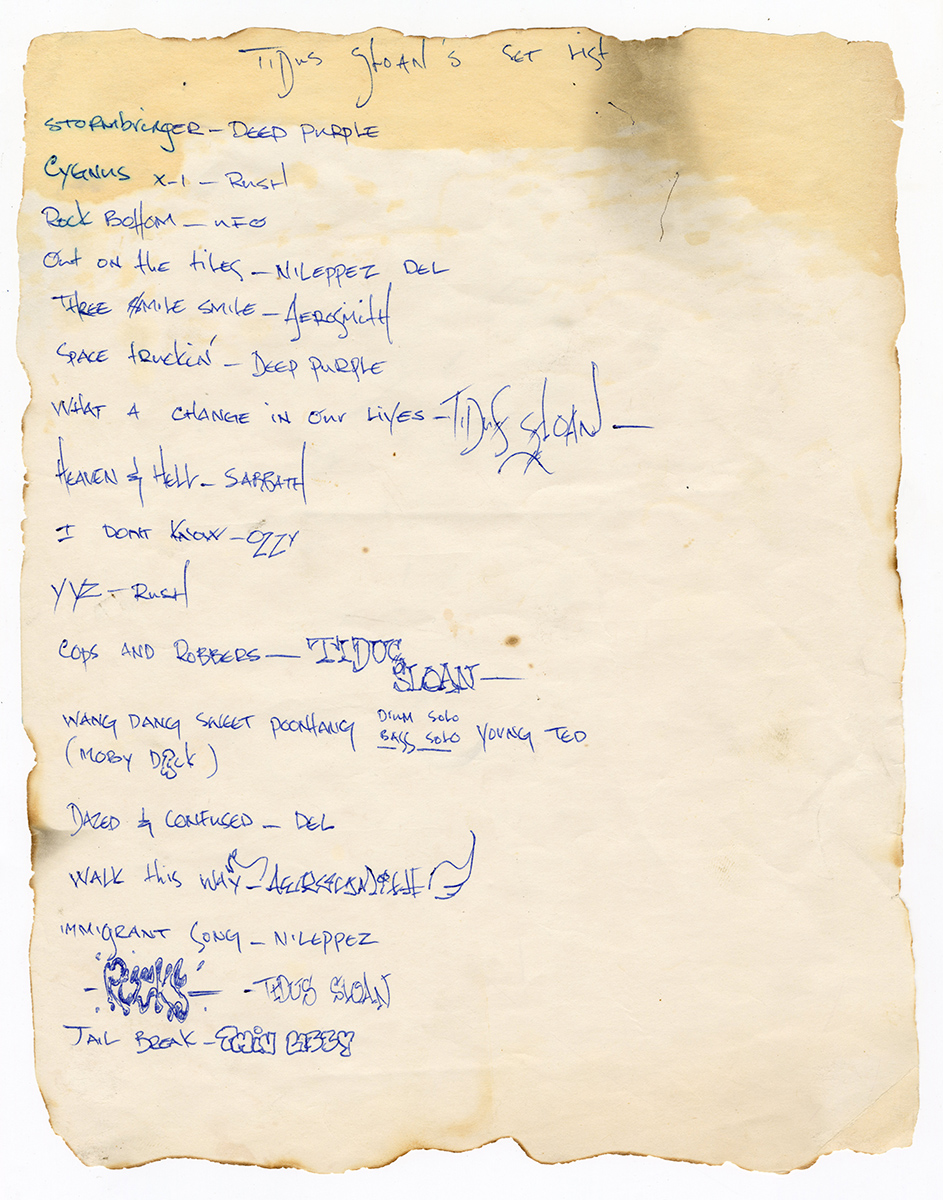 TIDUS SLOAN'S SET LIST
STORMbringer – DEEP PURPLE
CYGNUS X-1 – RUSH
ROCK BOTTOM – UFO
OUT ON the tiles – NILEPPEZ DEL
THREE MILE SMILE – AEROSMITH
SPACE truckin' – DEEP PURPLE
WHAT A CHANGE IN OUR LIVES – TIDUS SLOAN –
HEAVEN & HELL – SABBATH
I DONT KNOW – OZZY
YYZ – RUSH
COPS AND ROBBERS – TIDUS SLOAN –
WANG DANG SWEET POONTANG DRUM SOLO BASS SOLO YOUNG TED
(MOBY DICK)
DAZED & CONFUSED – DEL
WALK this WAY –
IMMIGRANT SONG – NILEPPEZ
– ROCKS – – TIDUS SLOAN
JAIL BREAK – THIN LIZZY